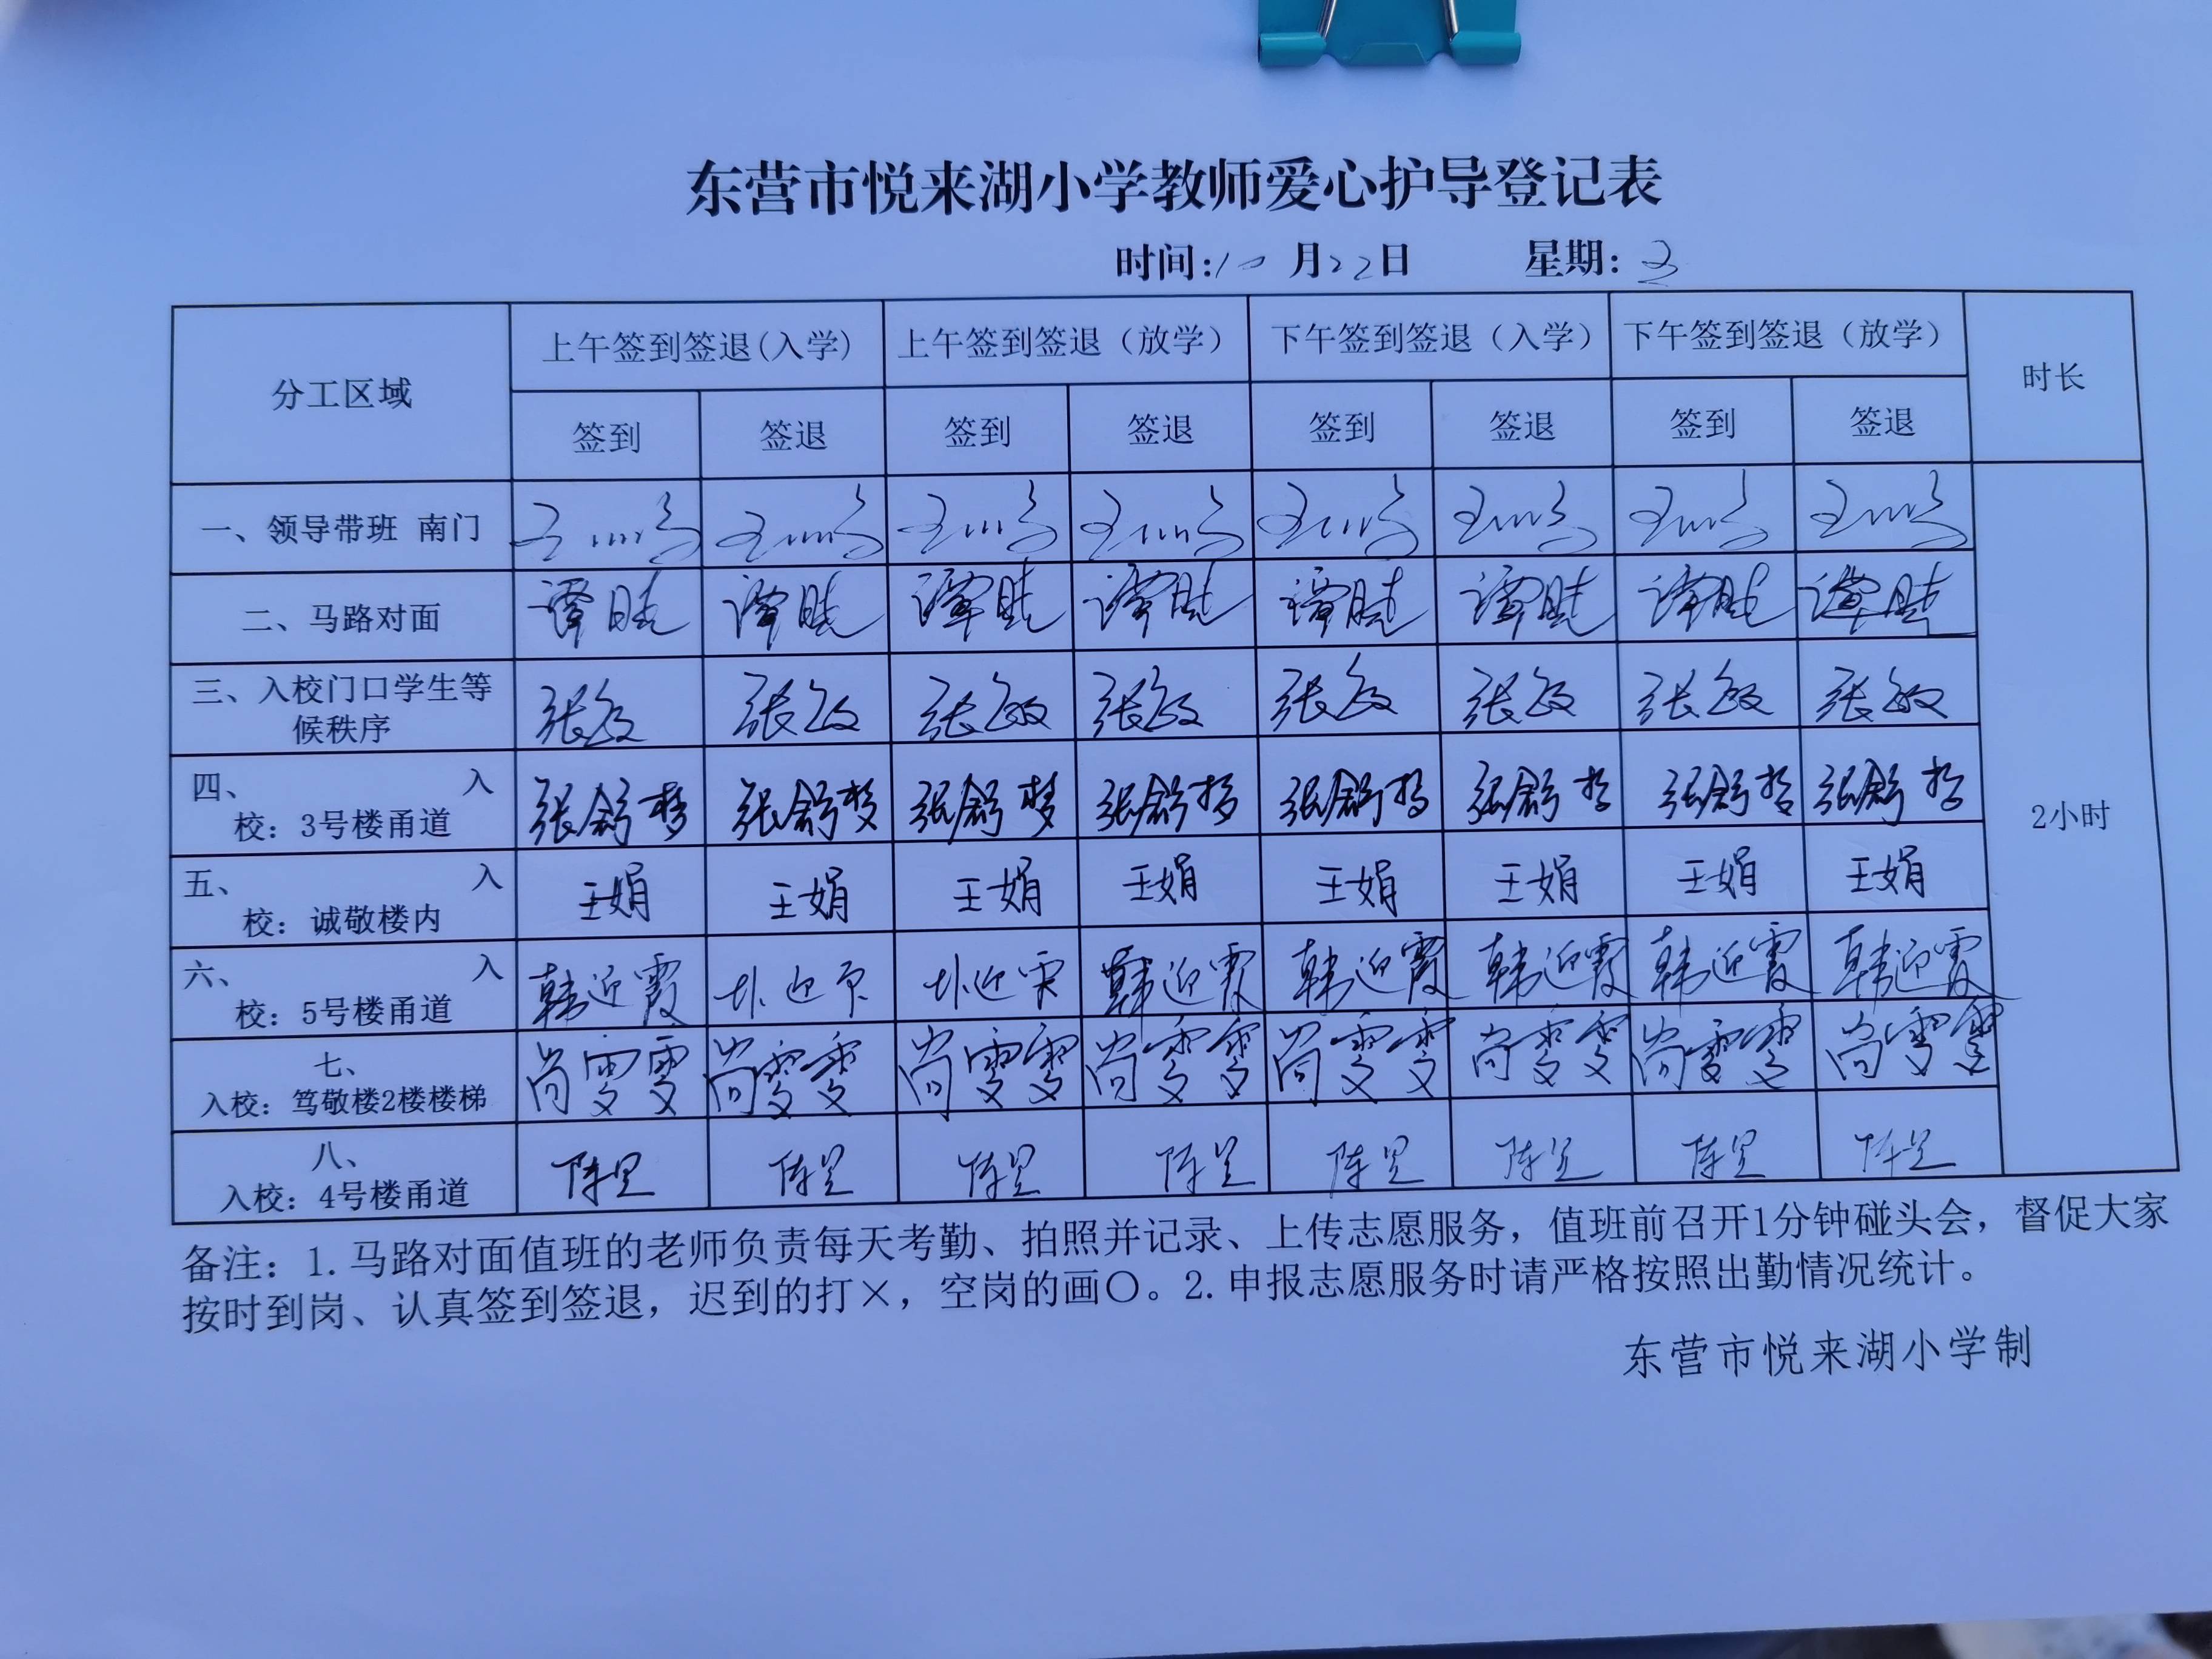 东营市悦来湖小学教师爱心护导登记表
时间:10月22日 星期:
分工区域 上午签到签退(入学) 上午签到签退（放学） 下午签到签退（入学） 下午签到签退（放学） 时长
签到 签退 签到 签退 签到 签退 签到 签退
一、领导带班 南门
二、马路对面 谭 谭 谭 谭 谭 谭 谭 谭
三、入校门口学生等
候秩序
张敏 张敏 张敏 张敏 张敏 张敏 张敏 张敏
四、 入
校：3号楼甬道
张舒 张舒 张舒 张舒 张舒 张舒 张舒 张舒
2小时
五、 入
校：诚敬楼内
王娟 王娟 王娟 王娟 王娟 王娟 王娟 王娟
六、 入
校：5号楼甬道
韩迎霞 韩迎霞 韩迎霞 韩迎霞 韩迎霞 韩迎霞
七、
入校：笃敬楼2楼楼梯
尚雯雯 尚雯雯 尚雯雯 尚雯雯 尚雯雯 尚雯雯 尚雯雯 尚雯雯
八、
入校：4号楼甬道
陈昱 陈昱 陈昱 陈昱 陈昱 陈昱 陈昱 陈昱
备注：1.马路对面值班的老师负责每天考勤、拍照并记录、上传志愿服务，值班前召开1分钟碰头会，督促大家
按时到岗、认真签到签退，迟到的打×，空岗的画○。2.申报志愿服务时请严格按照出勤情况统计。
东营市悦来湖小学制